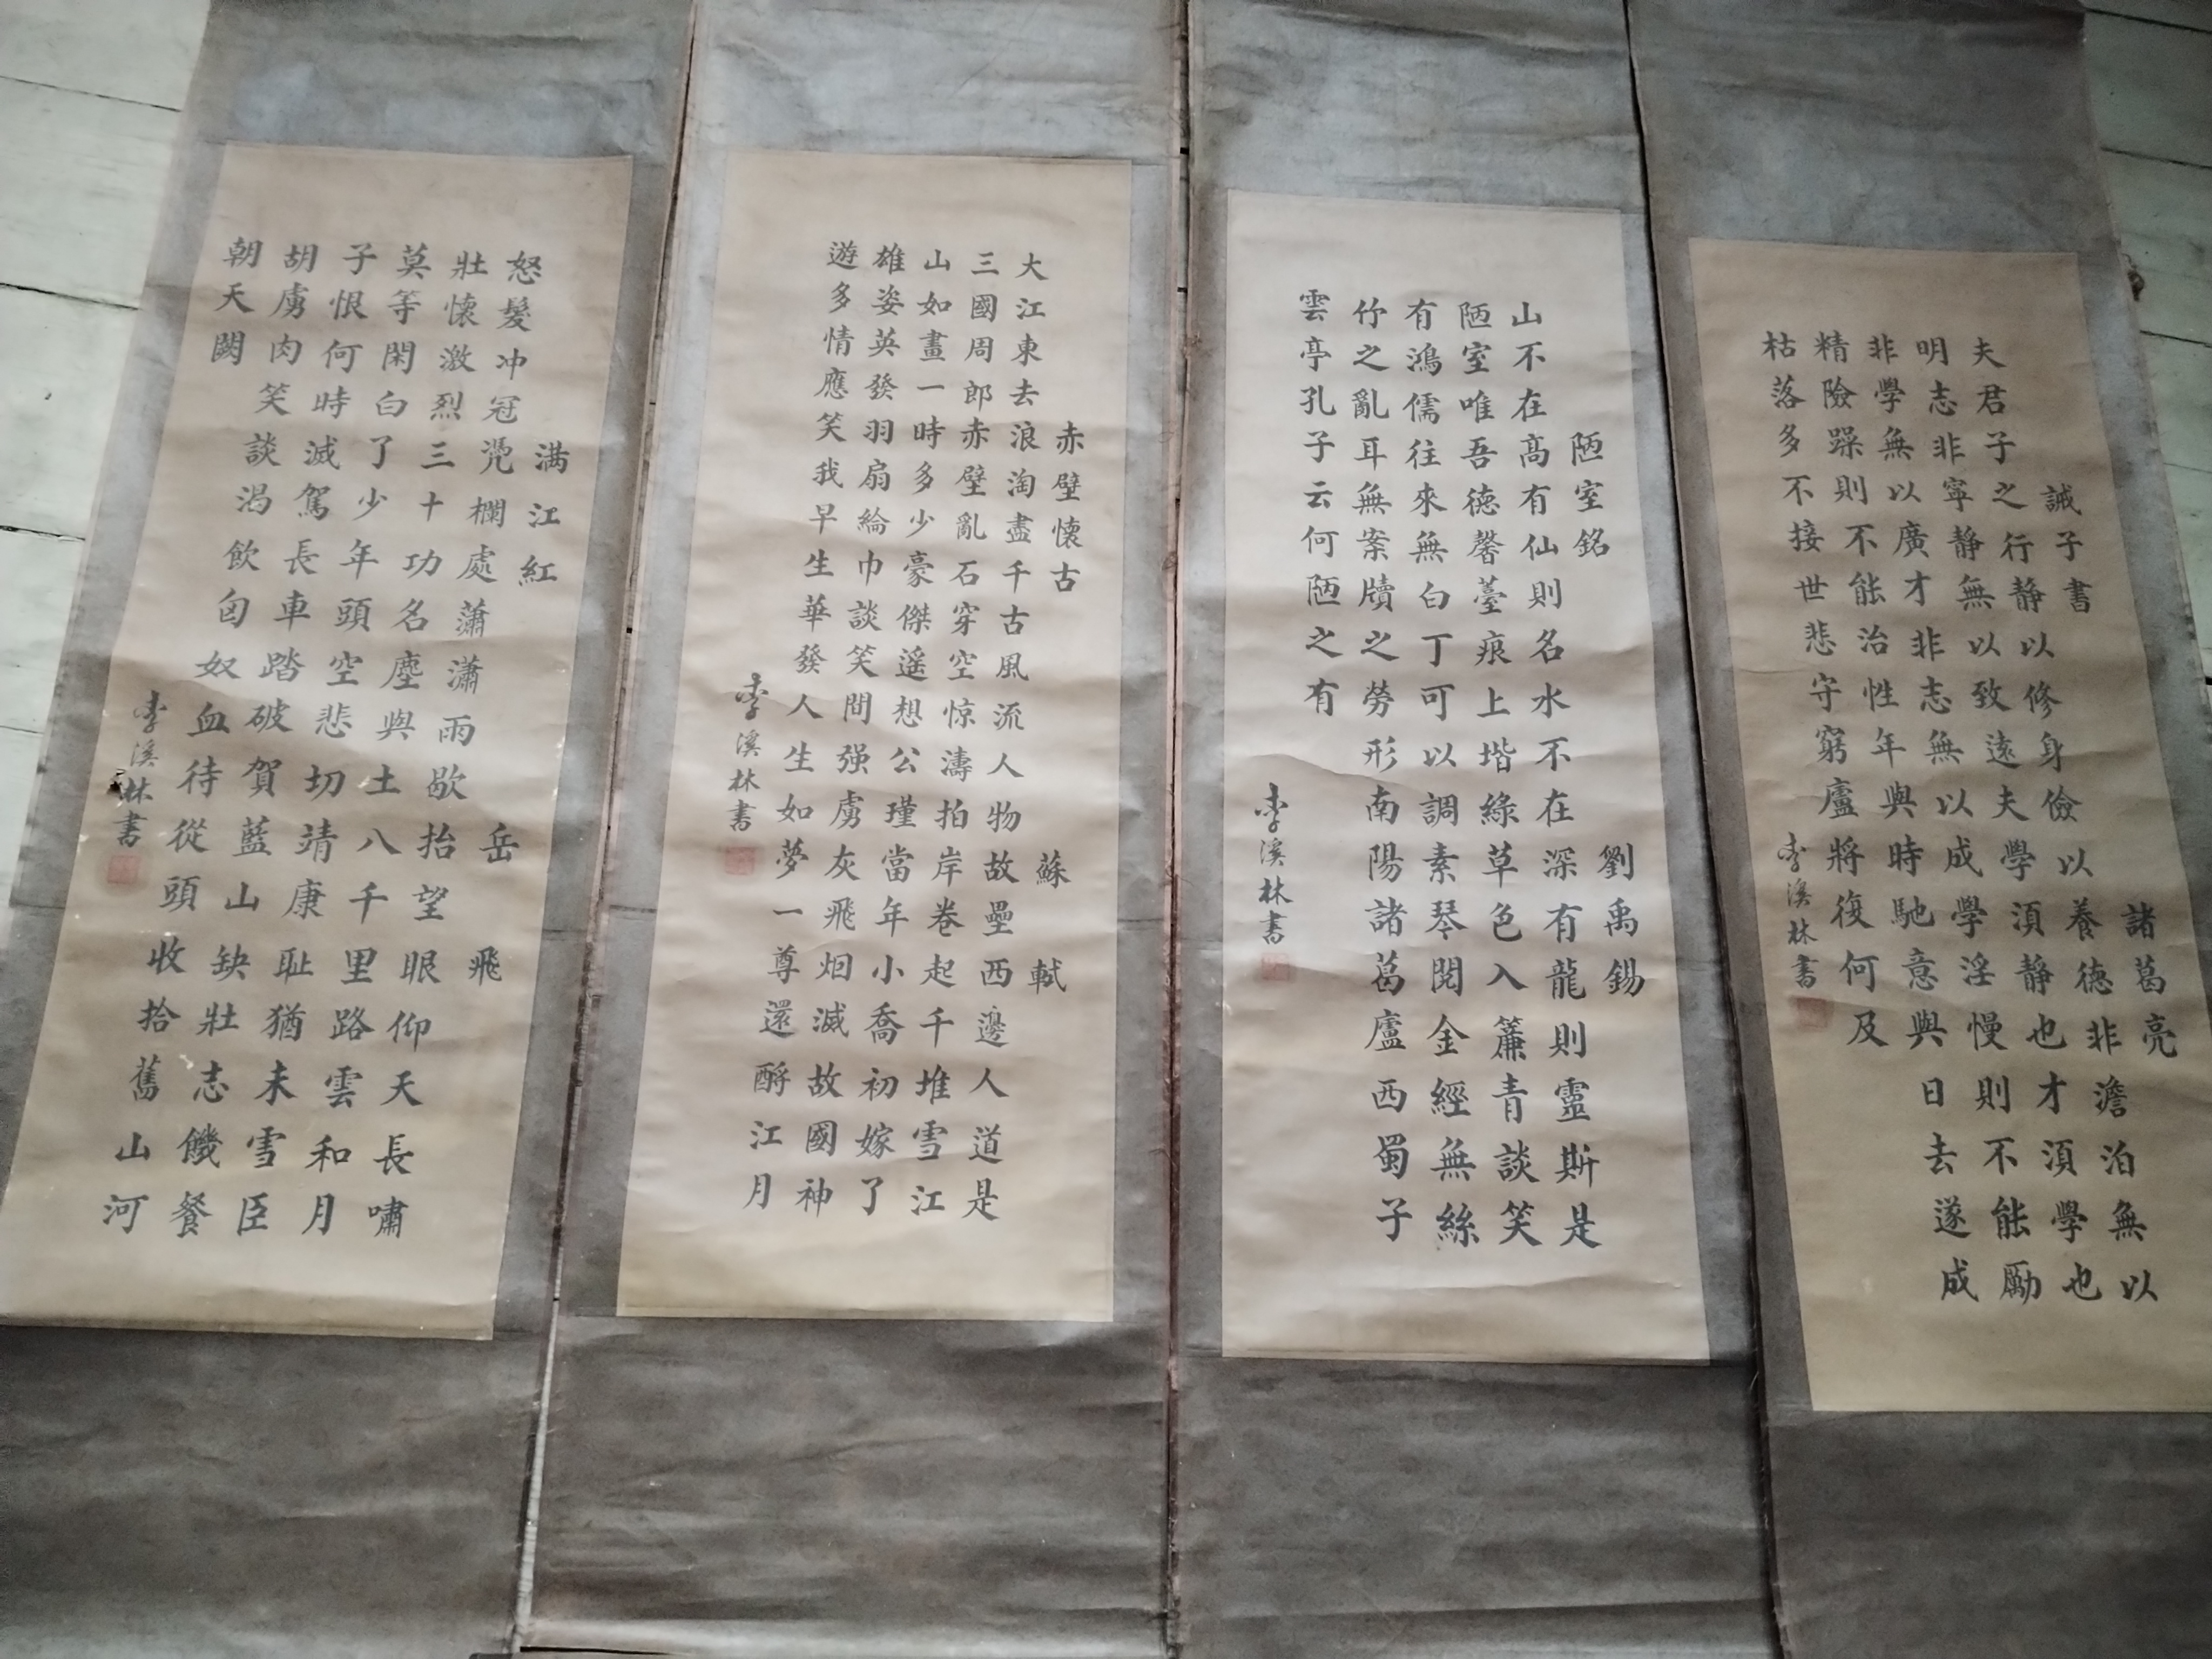 誡子書 諸葛亮
夫君子之行静以修身儉以養德非澹泊無以
明志非寧静無以致遠夫學須静也才須學也
非學無以廣才非志無以成學淫慢則不能勵
精險躁則不能治性年與時馳意與日去遂成
枯落多不接世悲守窮廬將復何及
李溪林書
陋室銘 劉禹錫
山不在高有仙則名水不在深有龍則靈斯是
陋室唯吾德馨薹痕上堦綠草色入簾青談笑
有鴻儒往來無白丁可以調素琴閱金經無絲
竹之亂耳無案牘之勞形南陽諸葛廬西蜀子
雲亭孔子云何陋之有
李溪林書
赤壁懷古 蘇軾
大江東去浪淘盡千古風流人物故壘西邊人道是
三國周郎赤壁亂石穿空惊濤拍岸卷起千堆雪江
山如畫一時多少豪傑遥想公瑾當年小喬初嫁了
雄姿英發羽扇綸巾談笑間强虜灰飛烟滅故國神
遊多情應笑我早生華發人生如夢一尊還酹江月
李溪林書
满江紅 岳飛
怒髮冲冠凭欄處瀟瀟雨歇抬望眼仰天長嘯
壯懷激烈三十功名塵與土八千里路雲和月
莫等閑白了少年頭空悲切靖康耻猶未雪臣
子恨何時滅駕長車踏破賀藍山缺壯志饑餐
胡虜肉笑談渴飲匈奴血待從頭收拾舊山河
朝天闕
李溪林書